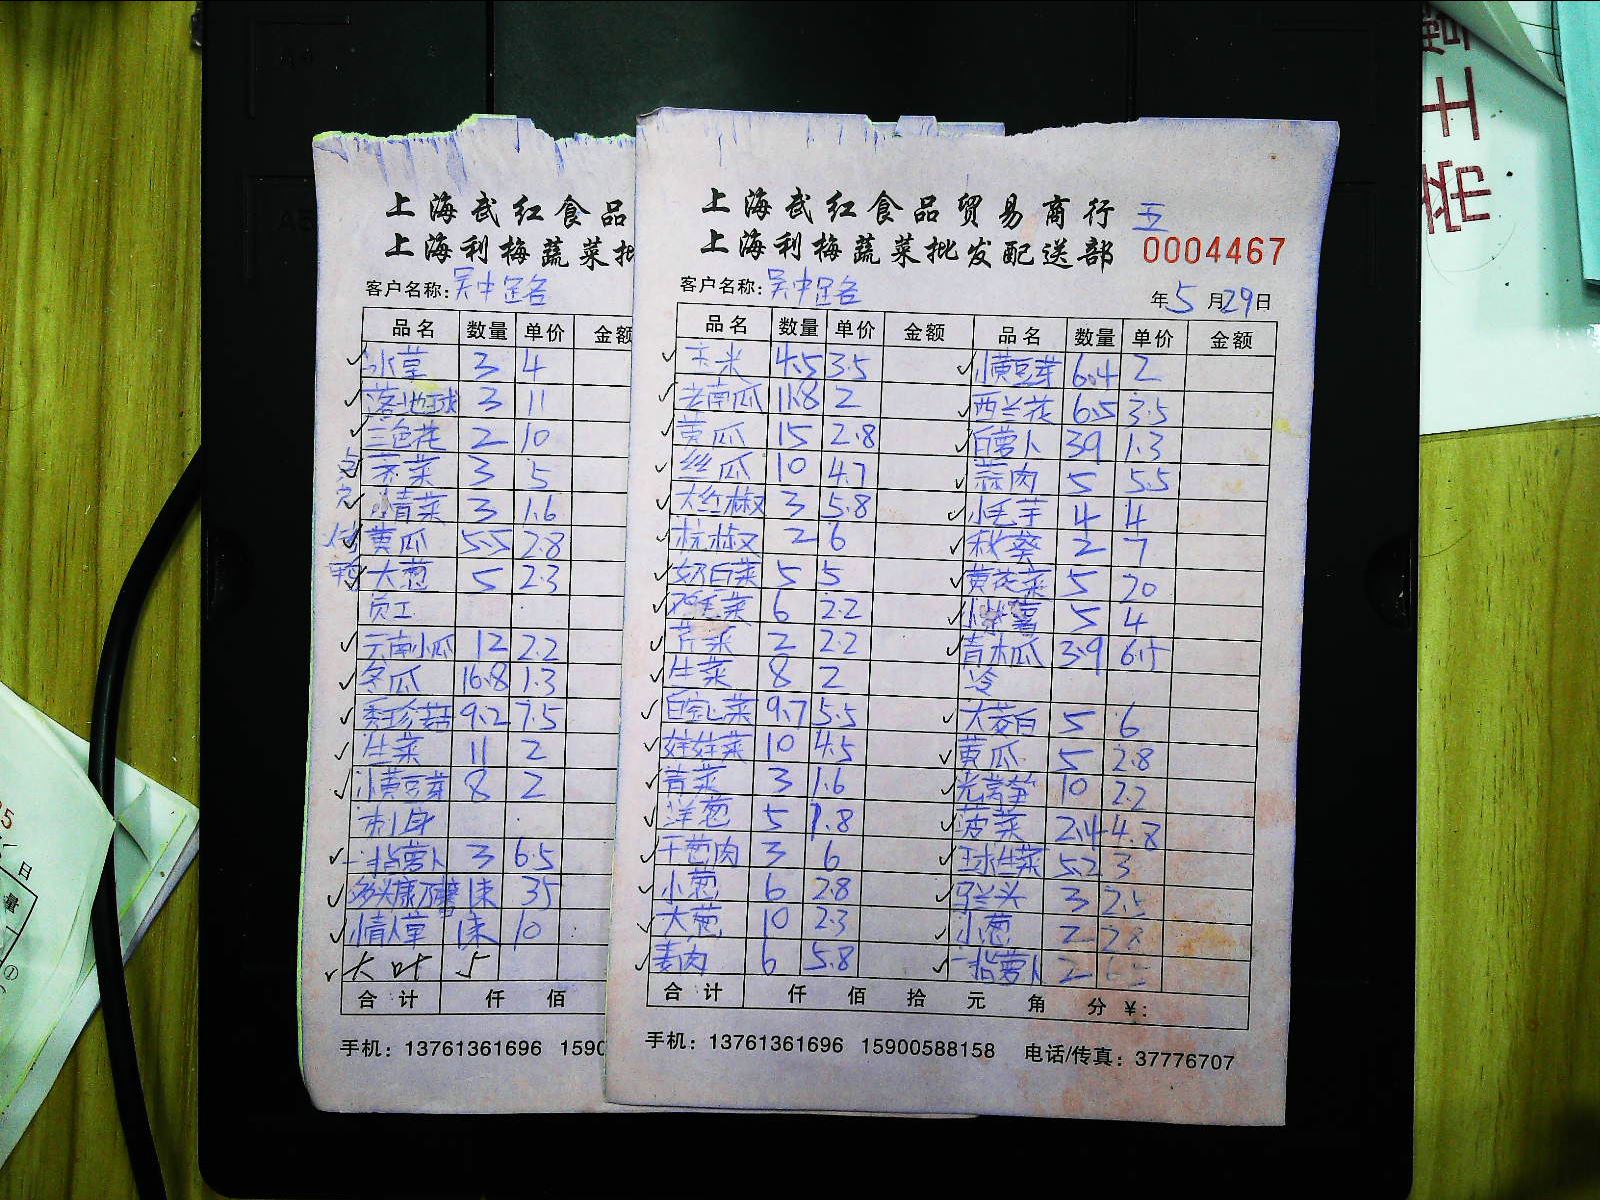 上海武红食品
上海利梅蔬菜批
客户名称:吴中
品名 数量 单价 金额
冰草 3 4
落地球 3 11
三色花 2 10
3 5
小青菜 3 1.6
黄瓜 5.5 2.8
大葱 5 2.3
员工
云南小瓜 12 2.2
冬瓜 16.8 1.3
秀珍菇 9.2 7.5
生菜 11 2
小黄豆芽 8 2
刺身
一指萝卜 3 6.5
1束 35
情人草 1束 10
大叶 5
合计 仟 佰
手机：13761361696 1590
上海武红食品贸易商行 五
上海利梅蔬菜批发配送部 0004467
客户名称:吴中 年5月29日
品名 数量 单价 金额 品名 数量 单价 金额
玉米 4.5 3.5 小黄豆芽 6.4 2
老南瓜 11.8 2 西兰花 6.5 3.5
黄瓜 15 2.8 白萝卜 39 1.3
丝瓜 10 4.7 蒜肉 5 5.5
大红椒 3 5.8 小毛芋 4 4
杭椒 2 6 秋葵 2 7
奶白菜 5 5 黄花菜 5 20
鸡毛菜 6 2.2 小 薯 5 4
芹菜 2 2.2 青木瓜 3.9 6.5
生菜 8 2 冷
白 菜 9.7 5.5 大茭白 5 6
娃娃菜 10 4.5 黄瓜 5 2.8
青菜 3 1.6 光莴笋 10 2.2
洋葱 5 1.8 菠菜 2.4 4.8
干葱肉 3 6 球生菜 5.2 3
小葱 6 2.8 马兰头 3 2.5
大葱 10 2.3 小葱 2 2.8
姜肉 6 5.8 一指萝卜 2 6.5
合计 仟 佰 拾 元 角 分 ¥:
手机：13761361696 15900588158 电话/传真：37776707